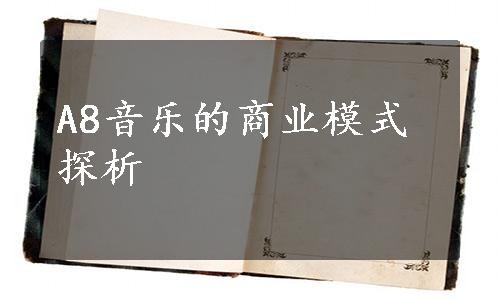 A8音乐的商业模式
探析